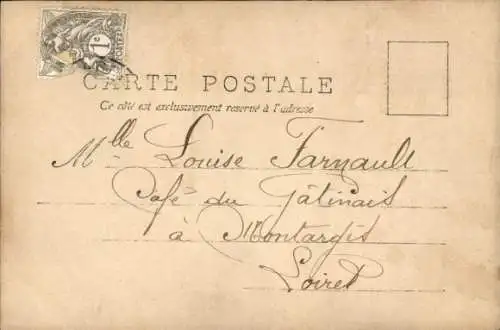 1c
CARTE POSTALE
Ce côté est exclusivement reservé à l'adresse
Mlle Louise Farnault
Café du Gâtinais
à Montargis
Loiret